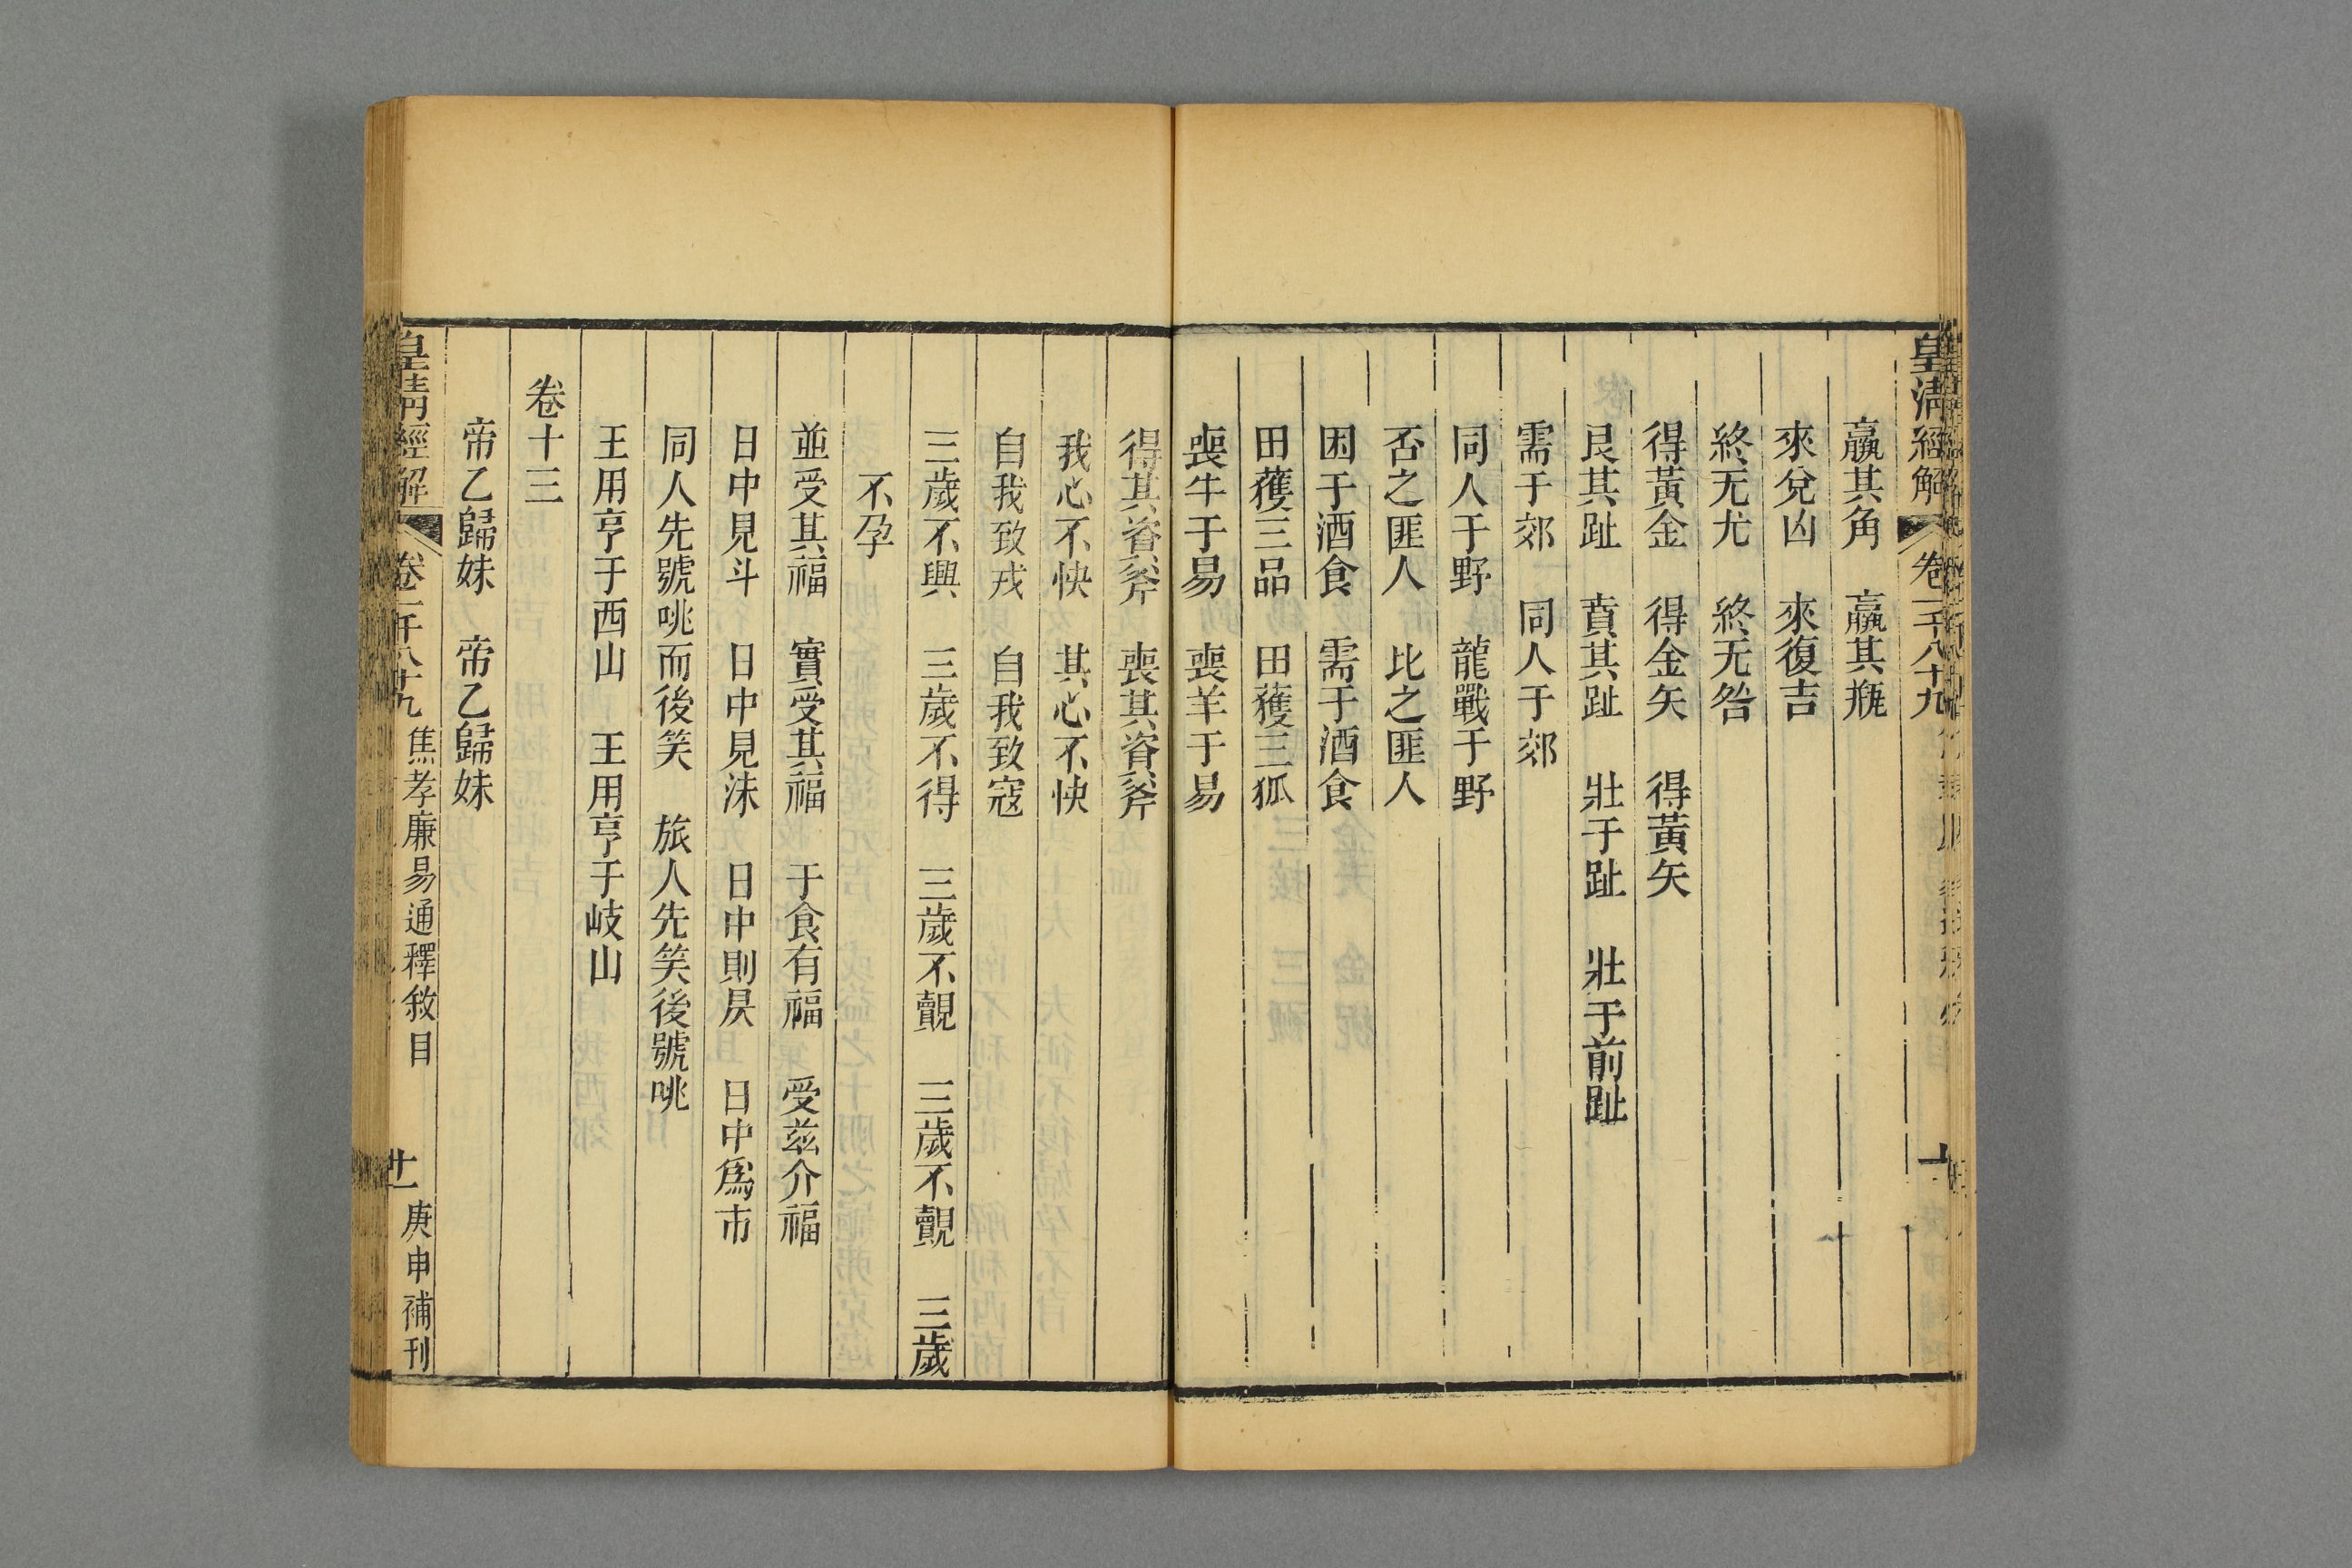 皇清經解 卷一千八十九
羸其角 羸其瓶
來兌凶 來復吉
終无尤 終无咎
得黃金 得金矢 得黃矢
艮其趾 賁其趾 壯于趾 壯于前趾
需于郊 同人于郊
同人于野 龍戰于野
否之匪人 比之匪人
困于酒食 需于酒食
田獲三品 田獲三狐
喪牛于易 喪羊于易
得其資斧 喪其資斧
我心不快 其心不快
自我致戎 自我致寇
三歲不興 三歲不得 三歲不覿 三歲不覿 三歲
不孕
並受其福 實受其福 于食有福 受茲介福
日中見斗 日中見沬 日中則昃 日中爲市
同人先號咷而後笑 旅人先笑後號咷
王用亨于西山 王用亨于岐山
卷十三
帝乙歸妹 帝乙歸妹
皇清經解 卷一千八十九 焦孝廉易通釋敘目 十一 庚申補刊